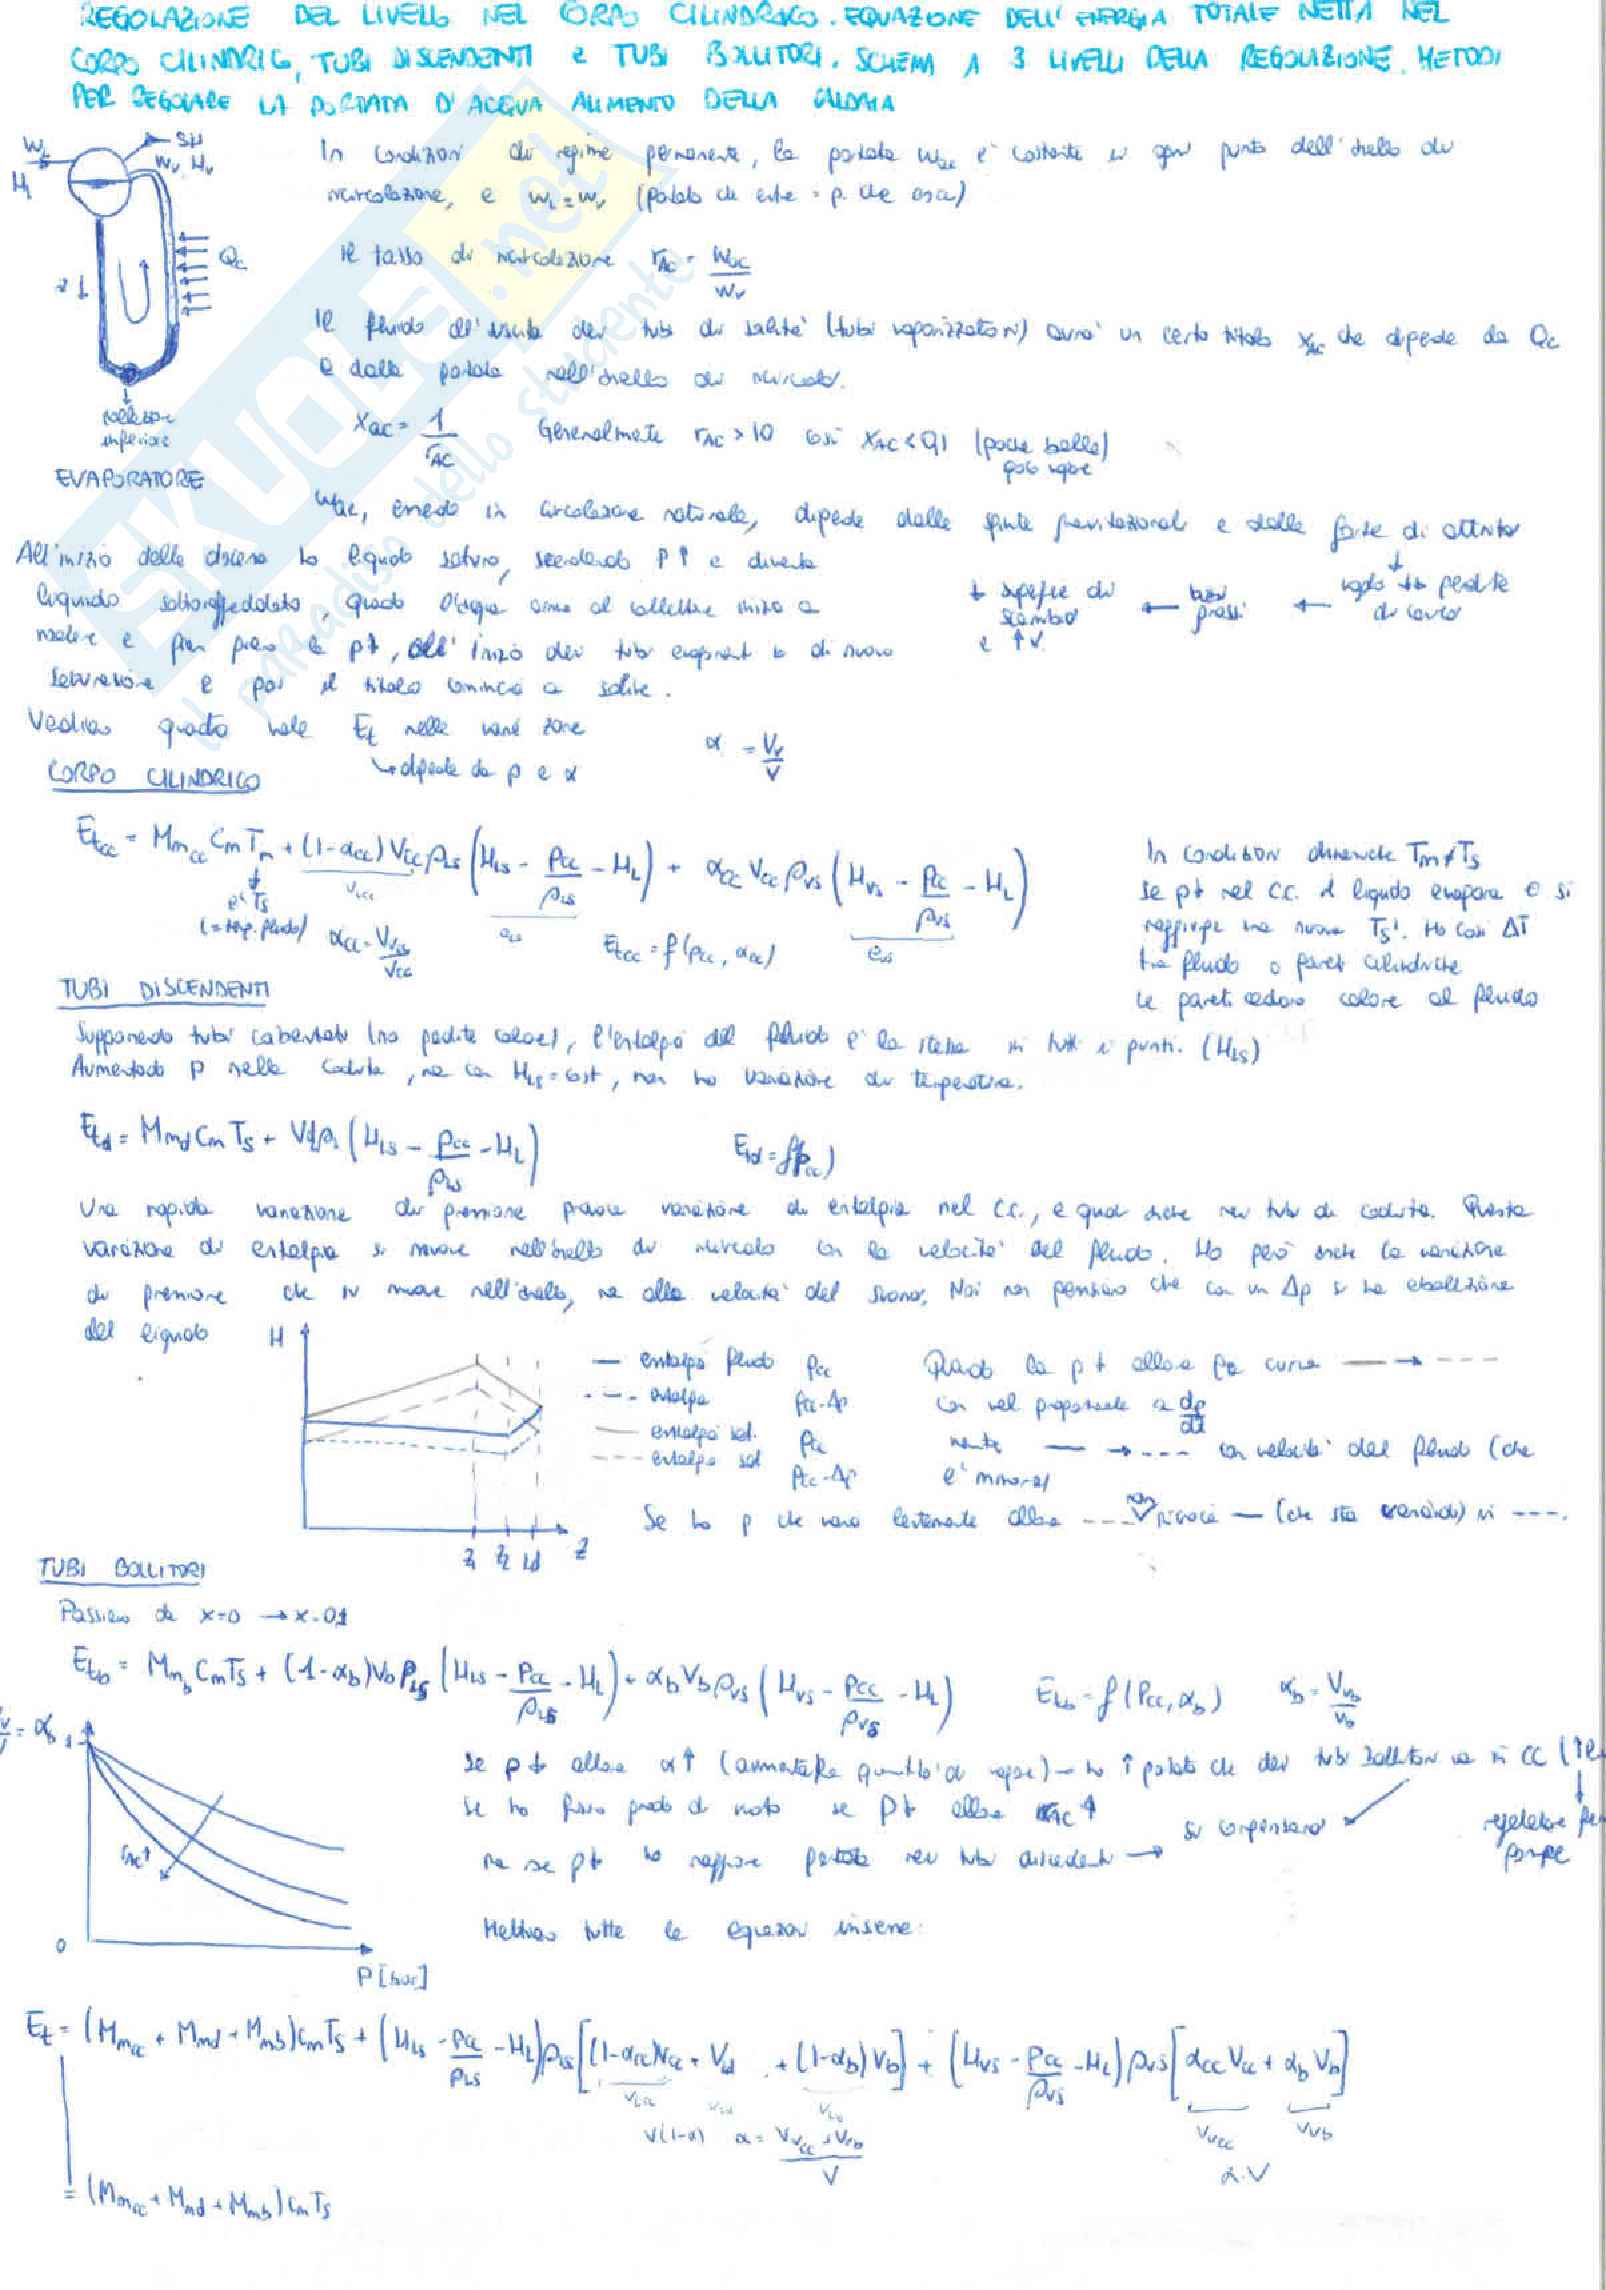 REGOLAZIONE DEL LIVELLO NEL CORPO CILINDRICO. EQUAZIONE DELL'ENERGIA TOTALE NETTA NEL
CORPO CILINDRICO, TUBI DISCENDENTI e TUBI BOLLITORI. SCHEMA A 3 LIVELLI DELLA REGOLAZIONE. METODI
PER REGOLARE LA PORTATA D'ACQUA ALIMENTO DELLA CALDAIA
SH
W_L
W_v H_v
H_L
Q_c
z↓
collettore
inferiore
EVAPORATORE
In condizioni di regime permanente, la portata w_ac è costante in ogni punto dell'anello di
ricircolazione, e w_L = w_v (portata che entra = p. che esce)
Il tasso di ricircolazione r_AC = w_ac / w_v
Il fluido all'uscita dei tubi di salita (tubi vaporizzatori) avrà un certo titolo x_AC che dipende da Q_c
e dalla portata nell'anello di ricircolo.
x_ac = 1 / r_AC Generalmente r_AC > 10 così x_AC < 0,1 (poche bolle)
poco vapore
w_ac, essendo in circolazione naturale, dipende dalle spinte gravitazionali e dalle forze di attrito
All'inizio della discesa ho liquido saturo, scendendo P↑ e diventa
liquido sottoraffreddato, quando l'acqua arriva al collettore inizia a
salire e pian piano la p↓, all'inizio dei tubi evaporanti ho di nuovo
saturazione e poi il titolo comincia a salire.
↓ superficie di scambio ← ← voglio perdite di carico
e ↑V
Vediamo quanto vale E_t nelle varie zone α = V_v / V
↳ dipende da p e α
CORPO CILINDRICO
E_tcc = M_mcc c_m T_m + (1-α_cc) V_cc ρ_LS (H_LS - p_cc/ρ_LS - H_L) + α_cc V_cc ρ_VS (H_VS - p_cc/ρ_VS - H_L)
è T_S
(= temp. fluido) α_cc = V_vcc / V_cc E_tcc = f(p_cc, α_cc)
In condizioni dinamiche T_m ≠ T_S
se p↓ nel C.C. il liquido evapora e si
raggiunge una nuova T_S'. Ho così ΔT
tra fluido e pareti cilindriche
le pareti cedono calore al fluido
TUBI DISCENDENTI
Supponendo tubi coibentati (no perdite calore), l'entalpia del fluido è la stessa in tutti i punti. (H_LS)
Aumentando p nella caduta, ma con H_LS = cost, non ho variazione di temperatura.
E_td = M_md c_m T_S + V_d ρ_L (H_LS - p_cc/ρ_LS - H_L) E_td = f(p_cc)
Una rapida variazione di pressione provoca variazione di entalpia nel C.C., e quindi anche nei tubi di caduta. Questa
variazione di entalpia si muove nell'anello di ricircolo con la velocità del fluido. Ho però anche la variazione
di pressione che si muove nell'anello, ma alla velocità del suono. Noi non pensiamo che con un Δp si ha ebollizione
del liquido
H
— entalpia fluido p_cc
--- entalpia p_cc-Δp
— entalpia sat. p_cc
--- entalpia sat p_cc-Δp
z_1 z_2 L_d z
Quando la p↓ allora la curva — → ---
con vel proporzionale a dp/dt
mentre — → --- con velocità del fluido (che
è minore)
Se ho p che varia lentamente allora --- non — (che sta variando) in ---.
TUBI BOLLITORI
Passiamo da x=0 → x=0,1
E_tb = M_mb c_m T_S + (1-α_b) V_b ρ_LS (H_LS - p_cc/ρ_LS - H_L) + α_b V_b ρ_VS (H_VS - p_cc/ρ_VS - H_L) E_tb = f(p_cc, α_b) α_b = V_vb / V_b
= α_b
1
r_AC↑
0
P [bar]
se p↓ allora α↑ (aumenta la quantità di vapore) → ho ↑ portata che dai tubi bollitori va in CC
se ho fisso grado di vuoto se p↓ allora r_AC↑
ma se p↓ ho maggiore portata nei tubi discendenti → si compensano
pompe
Mettiamo tutte le equazioni insieme:
E_t = (M_mcc + M_md + M_mb) c_m T_S + (H_LS - p_cc/ρ_LS - H_L) ρ_LS [(1-α_cc)V_cc + V_d + (1-α_b)V_b] + (H_VS - p_cc/ρ_VS - H_L) ρ_VS [α_cc V_cc + α_b V_b]
V(1-α) α = (V_vcc + V_vb) / V V_vcc V_vb
α·V
= (M_mcc + M_md + M_mb) c_m T_S
SKUOLA.net
il paradiso dello studente